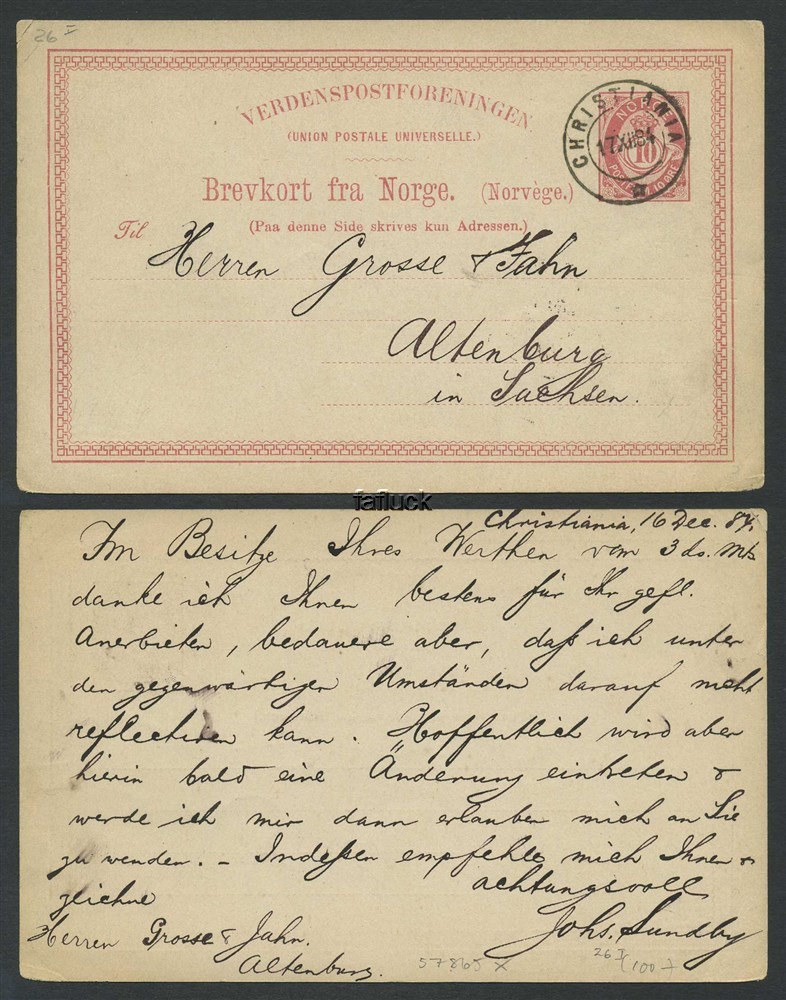 26 I
VERDENSPOSTFORENINGEN.
(UNION POSTALE UNIVERSELLE.)
NORGE
10
POSTFRIM. 10 ØRE
CHRISTIANIA
17 XII 84
Brevkort fra Norge. (Norvège.)
(Paa denne Side skrives kun Adressen.)
Til
Herren Grosse & Jahn
Altenburg
in Sachsen.
fafluck
Christiania, 16 Dec. 84.
Im Besitze Ihres Werthen vom 3 ds. Mts
danke ich Ihnen bestens für Ihr gefl.
Anerbieten, bedauere aber, daß ich unter
den gegenwärtigen Umständen darauf nicht
reflectiren kann. Hoffentlich wird aber
hierin bald eine Änderung eintreten &
werde ich mir dann erlauben mich an Sie
zu wenden. – Indeßen empfehle mich Ihnen &
zeichne
achtungsvoll
Johs. Sundby
Herren Grosse & Jahn.
Altenburg.
57865 X
26 I
(100.-)